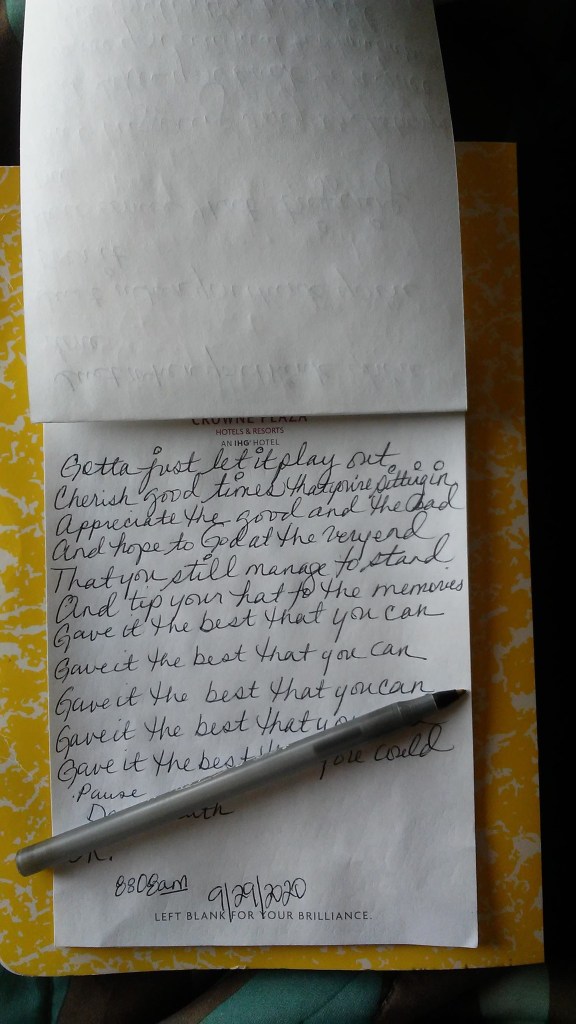 CROWNE PLAZA
HOTELS & RESORTS
AN IHG® HOTEL
Gotta just let it play out
Cherish good times that you're sitting in
Appreciate the good and the bad
And hope to God at the very end
That you still manage to stand
And tip your hat to the memories
Gave it the best that you can
Gave it the best that you can
Gave it the best that you can
Gave it the best that you
Gave it the best could
Pause
8:08am 9/29/2020
LEFT BLANK FOR YOUR BRILLIANCE.